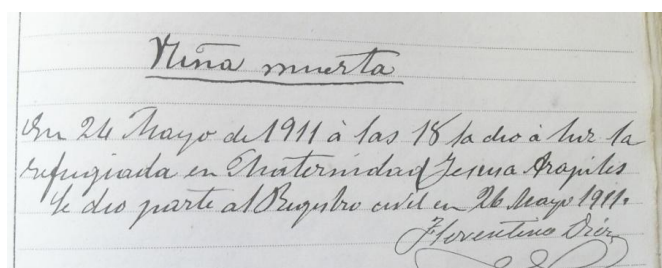 Niña muerta
En 26 Mayo de 1911 à las 18 la dio à luz la
refugiada en Maternidad Jesusa Arapiles
Se dio parte al Registro civil en 26 Mayo 1911.
Florentino Díez